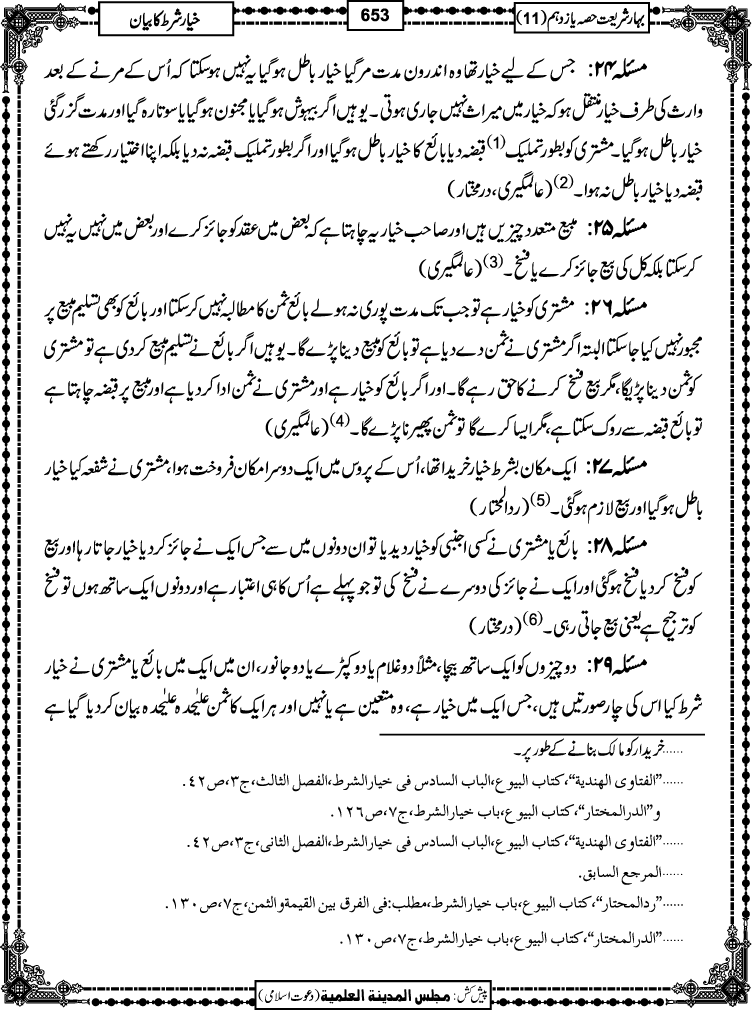 بہارِشریعت حصہ یازدہم (11)
653
خیارِ شرط کا بیان
مسئلہ ۲۴: جس کے لیے خیار تھا وہ اندرون مدت مرگیا خیار باطل ہوگیا یہ نہیں ہوسکتا کہ اُس کے مرنے کے بعد
وارث کی طرف خیار منتقل ہو کہ خیار میں میراث نہیں جاری ہوتی۔ یوہیں اگر بیہوش ہوگیا یا مجنون ہوگیا یا سوتا رہ گیا اور مدت گزر گئی
خیار باطل ہوگیا۔ مشتری کو بطور تملیک (1) قبضہ دیا بائع کا خیار باطل ہوگیا اور اگر بطور تملیک قبضہ نہ دیا بلکہ اپنا اختیار رکھتے ہوئے
قبضہ دیا خیار باطل نہ ہوا۔ (2) (عالمگیری، درمختار)
مسئلہ ۲۵: مبیع متعدد چیزیں ہیں اور صاحب خیار یہ چاہتا ہے کہ بعض میں عقد کو جائز کرے اور بعض میں نہیں یہ نہیں
کرسکتا بلکہ کل کی بیع جائز کرے یا فسخ۔ (3) (عالمگیری)
مسئلہ ۲۶: مشتری کو خیار ہے تو جب تک مدت پوری نہ ہولے بائع ثمن کا مطالبہ نہیں کرسکتا اور بائع کو بھی تسلیم مبیع پر
مجبور نہیں کیا جاسکتا البتہ اگر مشتری نے ثمن دے دیا ہے تو بائع کو مبیع دینا پڑے گا۔ یوہیں اگر بائع نے تسلیم مبیع کردی ہے تو مشتری
کو ثمن دینا پڑیگا، مگر بیع فسخ کرنے کا حق رہے گا۔ اور اگر بائع کو خیار ہے اور مشتری نے ثمن ادا کردیا ہے اور مبیع پر قبضہ چاہتا ہے
تو بائع قبضہ سے روک سکتا ہے، مگر ایسا کرے گا تو ثمن پھیرنا پڑے گا۔ (4) (عالمگیری)
مسئلہ ۲۷: ایک مکان بشرط خیار خریدا تھا، اُس کے پروس میں ایک دوسرا مکان فروخت ہوا، مشتری نے شفعہ کیا خیار
باطل ہوگیا اور بیع لازم ہوگئی۔ (5) (ردالمحتار)
مسئلہ ۲۸: بائع یا مشتری نے کسی اجنبی کو خیار دیدیا تو ان دونوں میں سے جس ایک نے جائز کردیا خیار جاتا رہا اور بیع
کو فسخ کردیا فسخ ہوگئی اور ایک نے جائز کی دوسرے نے فسخ کی تو جو پہلے ہے اُس کا ہی اعتبار ہے اور دونوں ایک ساتھ ہوں تو فسخ
کو ترجیح ہے یعنی بیع جاتی رہی۔ (6) (درمختار)
مسئلہ ۲۹: دو چیزوں کو ایک ساتھ بیچا، مثلاً دو غلام یا دو کپڑے یا دو جانور، ان میں ایک میں بائع یا مشتری نے خیار
شرط کیا اس کی چار صورتیں ہیں، جس ایک میں خیار ہے، وہ متعین ہے یا نہیں اور ہر ایک کا ثمن علیٰحدہ علیٰحدہ بیان کردیا گیا ہے
......خریدار کو مالک بنانے کے طور پر۔
......"الفتاوى الهندية"، كتاب البيوع، الباب السادس فى خيارالشرط، الفصل الثالث، ج۳، ص٤٢.
و"الدرالمختار"، كتاب البيوع، باب خيارالشرط، ج۷، ص١٢٦.
......"الفتاوى الهندية"، كتاب البيوع، الباب السادس فى خيارالشرط، الفصل الثانى، ج۳، ص٤٢.
......المرجع السابق.
......"ردالمحتار"، كتاب البيوع، باب خيارالشرط، مطلب: فى الفرق بين القيمة والثمن، ج۷، ص١٣٠.
......"الدرالمختار"، كتاب البيوع، باب خيارالشرط، ج۷، ص١٣٠.
پیش کش: مجلس المدینة العلمیة (دعوتِ اسلامی)